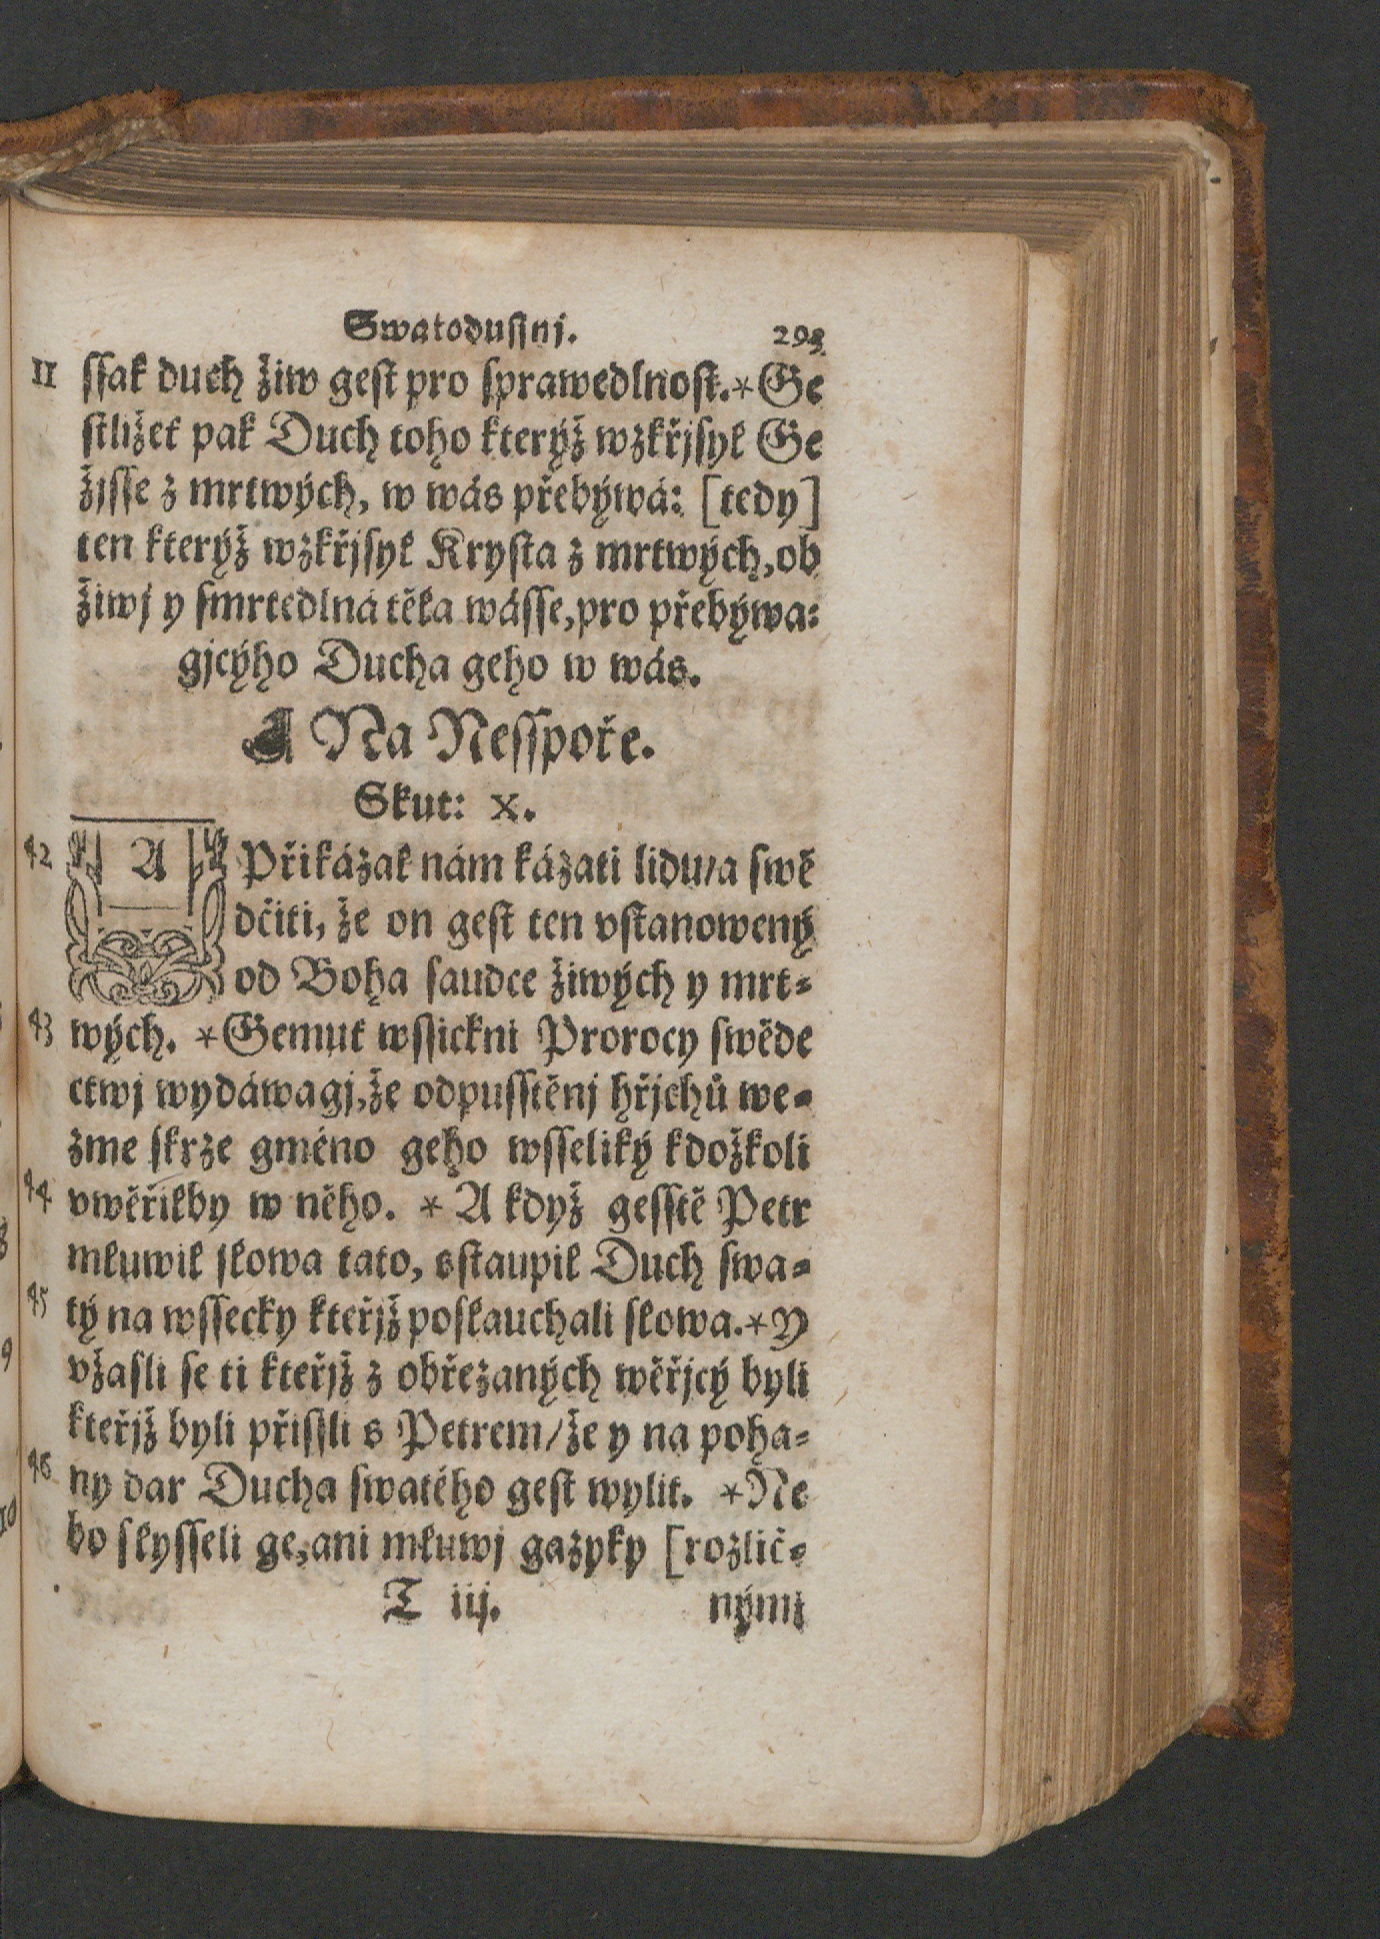 Swatoduſſnj. 293
11 ſſak duch žiw geſt pro ſprawedlnoſt.*Ge
ſtližeť pak Duch toho kterýž wzkřjſyl Ge
žjſſe z mrtwých, w wás přebýwá: [tedy]
ten kterýž wzkřjſyl Kryſta z mrtwých,ob
žiwj y ſmrtedlná těla wáſſe,pro přebýwa⸗
gjcýho Ducha geho w wás.
Na Neſſpoře.
Skut: X.
42 A Přikázal nám kázati lidu/a ſwě
dčiti, že on geſt ten vſtanowený
od Boha ſaudce žiwých y mrt⸗
43 wých. *Gemuť wſſickni Prorocy ſwěde
ctwj wydáwagj,že odpuſſtěnj hřjchů we⸗
zme ſkrze gméno geho wſſeliký kdožkoli
44 vwěřilby w něho. * A když geſſtě Petr
mluwil ſlowa tato, sſtaupil Duch ſwa⸗
45 tý na wſſecky kteřjž poſlauchali ſlowa.*Y
vžaſli ſe ti kteřjž z obřezaných wěřjcý byli
kteřjž byli přiſſli s Petrem/že y na poha⸗
46 ny dar Ducha ſwatého geſt wylit. *Ne
bo ſlyſſeli ge,ani mluwj gazyky [rozlič⸗
T iij. nými